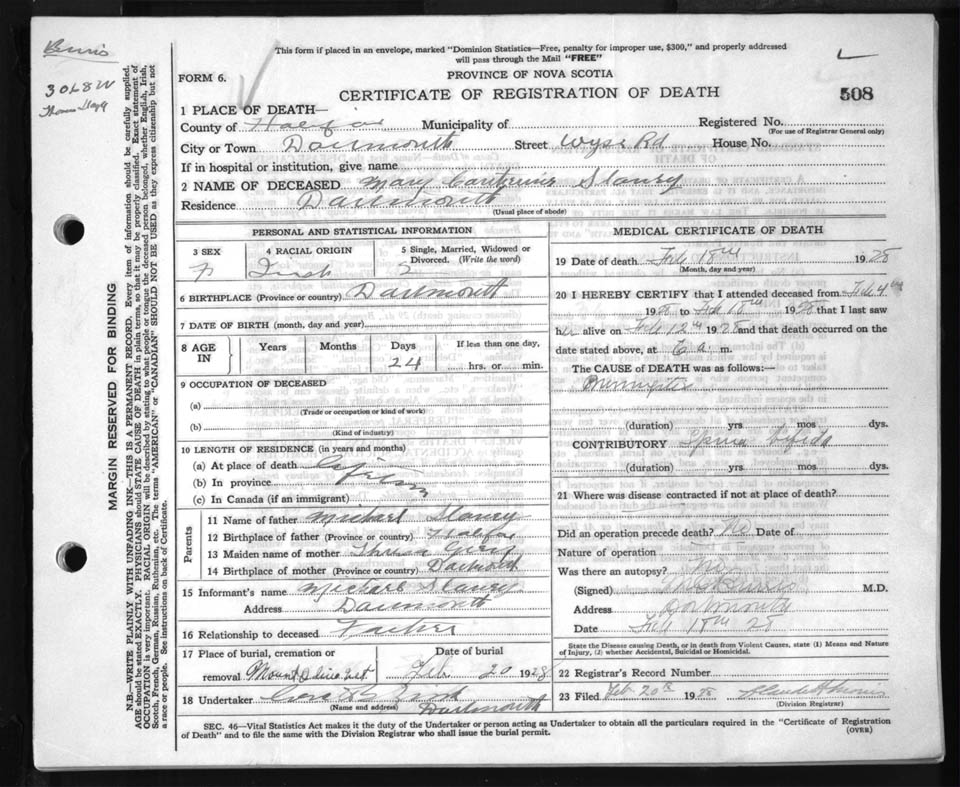 This form if placed in an envelope, marked "Dominion Statistics—Free, penalty for improper use, $300," and properly addressed
will pass through the Mail "FREE"
FORM 6.
PROVINCE OF NOVA SCOTIA
CERTIFICATE OF REGISTRATION OF DEATH
508
3068W
1 PLACE OF DEATH—
County of Halifax Municipality of Registered No.
(For use of Registrar General only)
City or Town Dartmouth Street Wyse Rd House No.
If in hospital or institution, give name
2 NAME OF DECEASED Mary Slaney
Residence Dartmouth
(Usual place of abode)
PERSONAL AND STATISTICAL INFORMATION
3 SEX 4 RACIAL ORIGIN 5 Single, Married, Widowed or
Divorced. (Write the word)
F Irish S
6 BIRTHPLACE (Province or country) Dartmouth
7 DATE OF BIRTH (month, day and year)
8 AGE IN Years Months Days If less than one day,
24 hrs. or min.
9 OCCUPATION OF DECEASED
(a)
(Trade or occupation or kind of work)
(b)
(Kind of industry)
10 LENGTH OF RESIDENCE (in years and months)
(a) At place of death Lifetime
(b) In province
(c) In Canada (if an immigrant)
Parents
11 Name of father Michael Slaney
12 Birthplace of father (Province or country) Halifax
13 Maiden name of mother
14 Birthplace of mother (Province or country) Dartmouth
15 Informant's name Michael Slaney
Address Dartmouth
16 Relationship to deceased Father
17 Place of burial, cremation or Date of burial
removal Mount Olivet Feb 20 1928
18 Undertaker
(Name and address) Dartmouth
MEDICAL CERTIFICATE OF DEATH
19 Date of death Feb 18th 1928
(Month, day and year)
20 I HEREBY CERTIFY that I attended deceased from Feb 4th
1928 to Feb 18th 1928 that I last saw
her alive on Feb 12th 1928 and that death occurred on
date stated above, at 6 a. m.
The CAUSE of DEATH was as follows:—
Meningitis
(duration) yrs mos dys.
CONTRIBUTORY Spina bifida
(duration) yrs mos dys.
21 Where was disease contracted if not at place of death?
Did an operation precede death? No Date of
Nature of operation
Was there an autopsy? No
(Signed) M.D.
Address Dartmouth
Date Feb 18th 28
State the Disease causing Death, or in death from Violent Causes, state (1) Means and Nature
of Injury, (2) whether Accidental, Suicidal or Homicidal.
22 Registrar's Record Number
23 Filed Feb. 20th 1928
(Division Registrar)
SEC. 46—Vital Statistics Act makes it the duty of the Undertaker or person acting as Undertaker to obtain all the particulars required in the "Certificate of Registration
of Death" and to file the same with the Division Registrar who shall issue the burial permit.
(OVER)
MARGIN RESERVED FOR BINDING
N.B.—WRITE PLAINLY WITH UNFADING INK—THIS IS A PERMANENT RECORD. Every item of information should be carefully supplied.
AGE should be stated EXACTLY. PHYSICIANS should STATE CAUSE OF DEATH in plain terms, so that it may be properly classified. Exact statement of
OCCUPATION is very important. RACIAL ORIGIN will be described by stating to what people or tongue the deceased person belonged, whether English, Irish,
Scotch, French, German, Russian, Ruthenian, etc. The terms "AMERICAN" or "CANADIAN" SHOULD NOT BE USED as they express citizenship but not
a race or people. See instructions on back of Certificate.